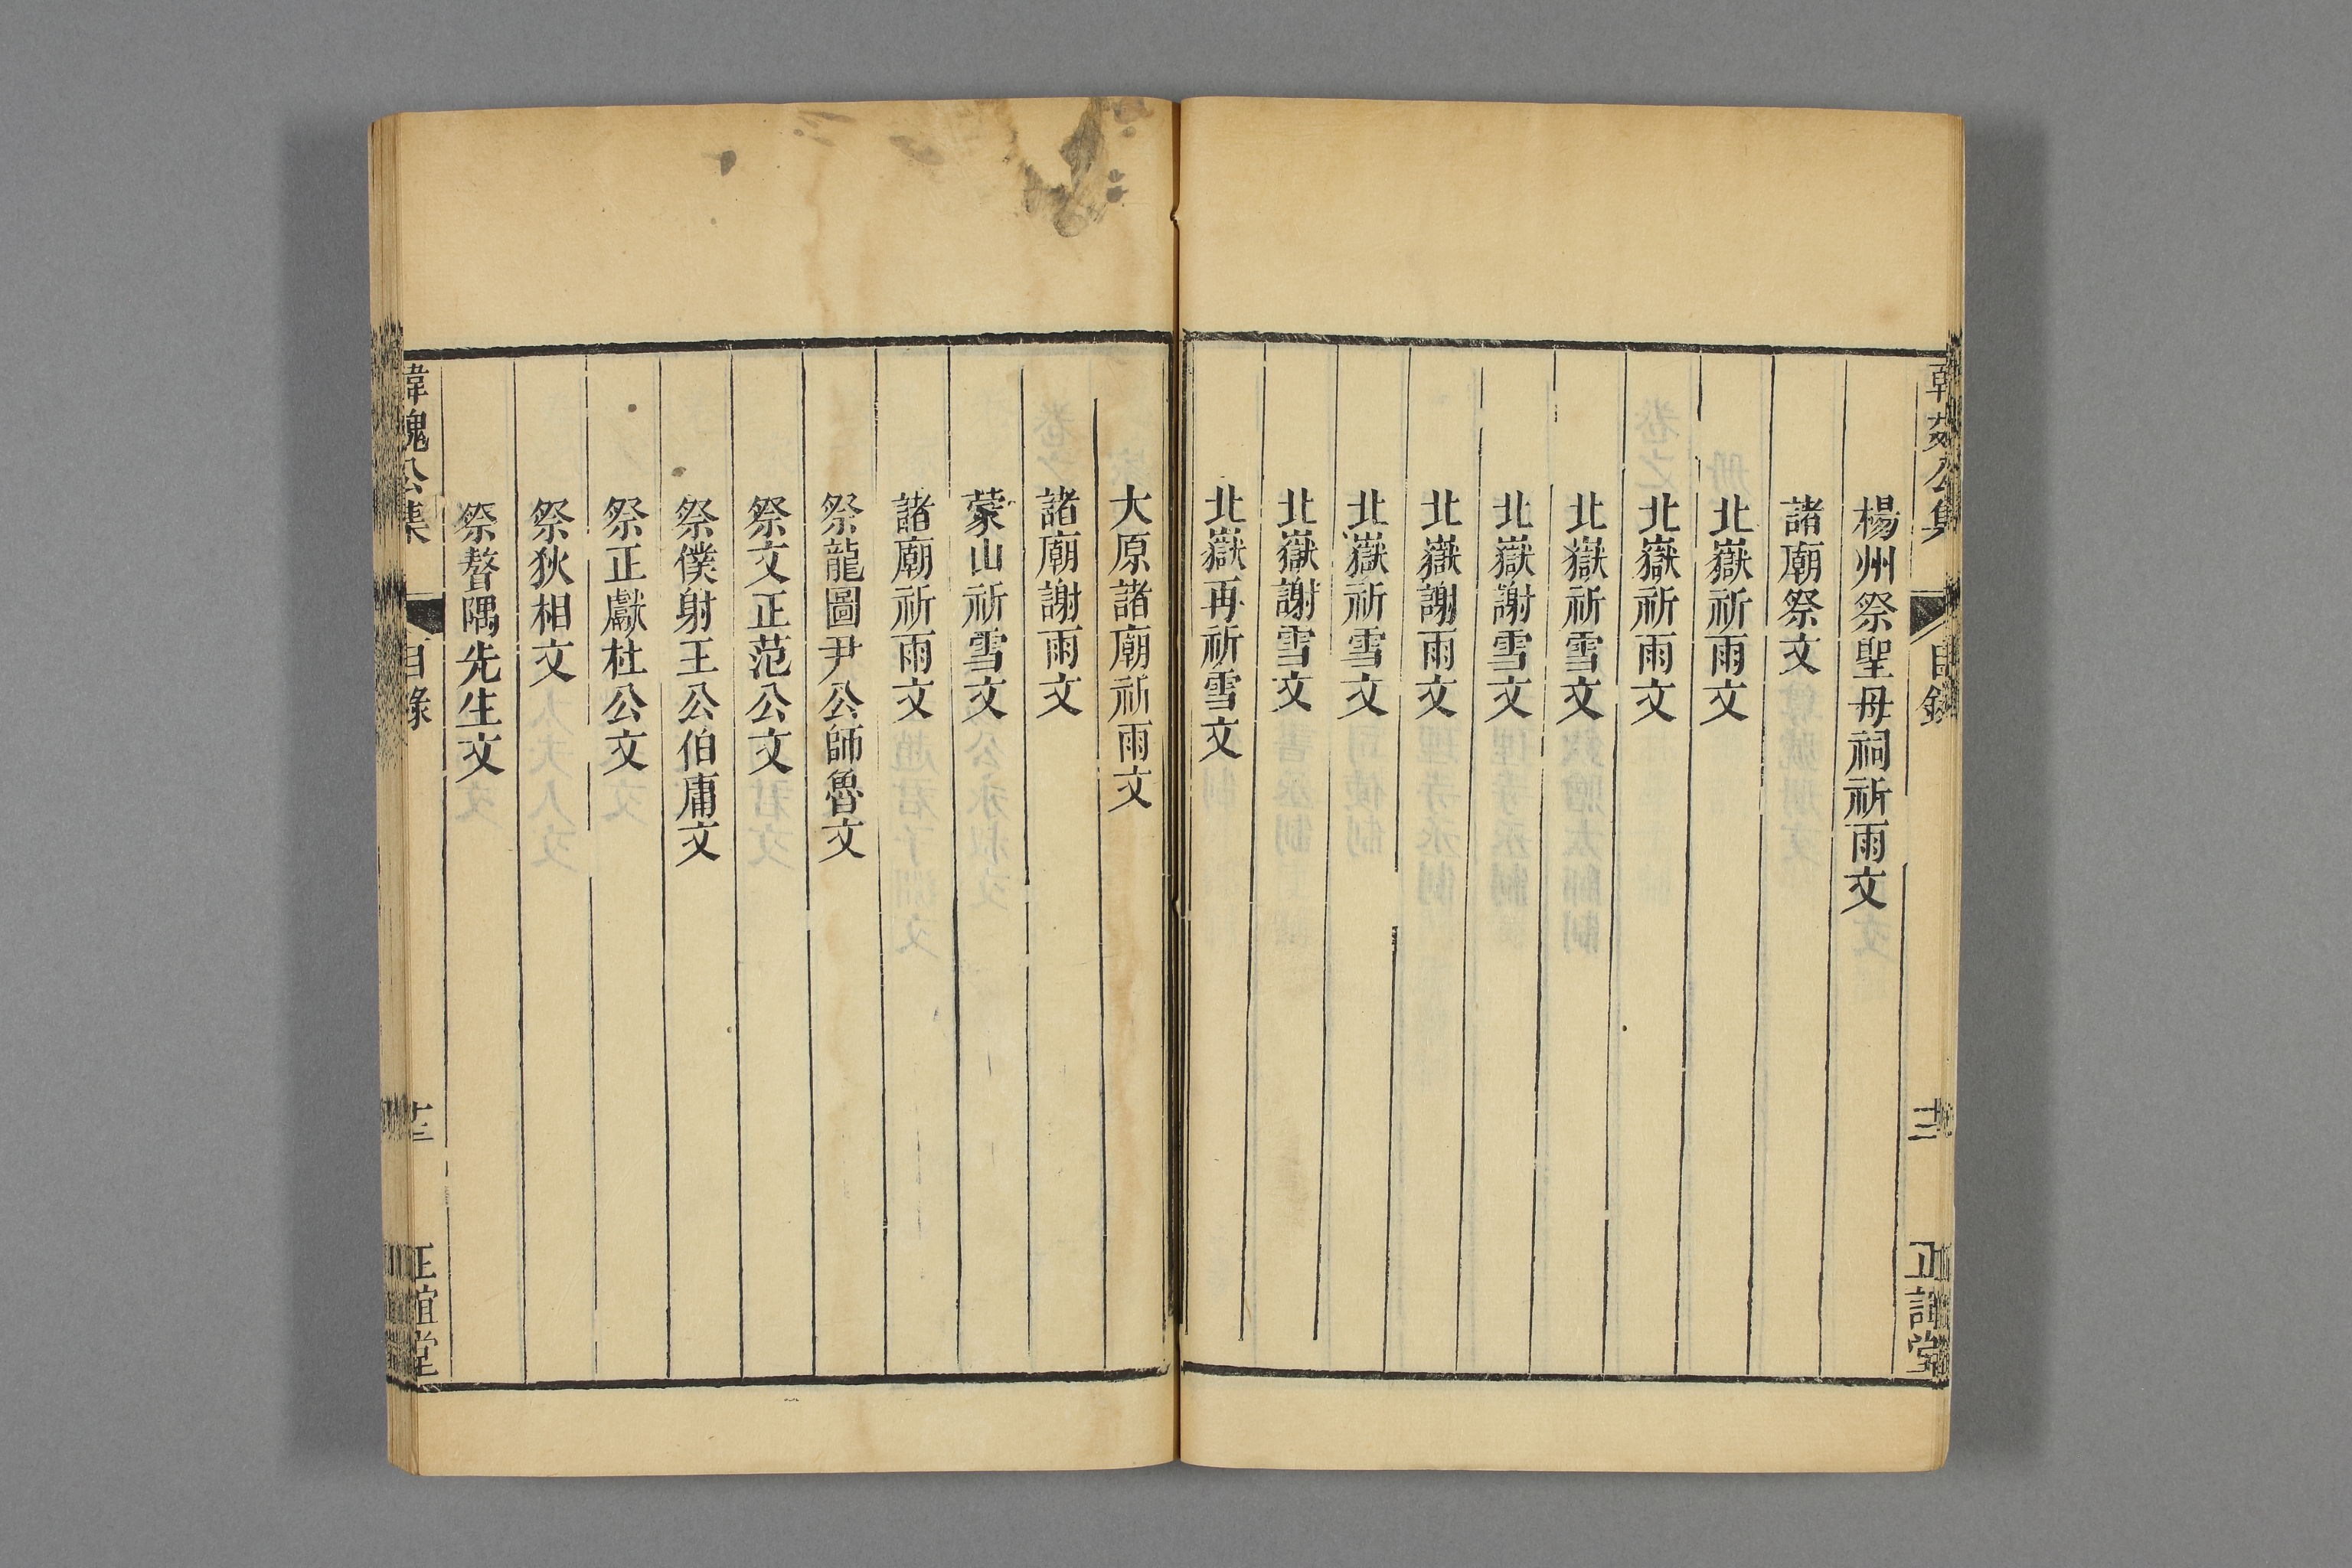 楊州祭聖母祠祈雨文
諸廟祭文
北嶽祈雨文
北嶽祈雨文
北嶽祈雪文
北嶽謝雪文
北嶽謝雨文
北嶽祈雪文
北嶽謝雪文
北嶽再祈雪文
大原諸廟祈雨文
諸廟謝雨文
蒙山祈雪文
諸廟祈雨文
祭龍圖尹公師魯文
祭文正范公文
祭僕射王公伯庸文
祭正獻杜公文
祭狄相文
祭𥊍隅先生文
韓魏公集
目錄
正誼堂